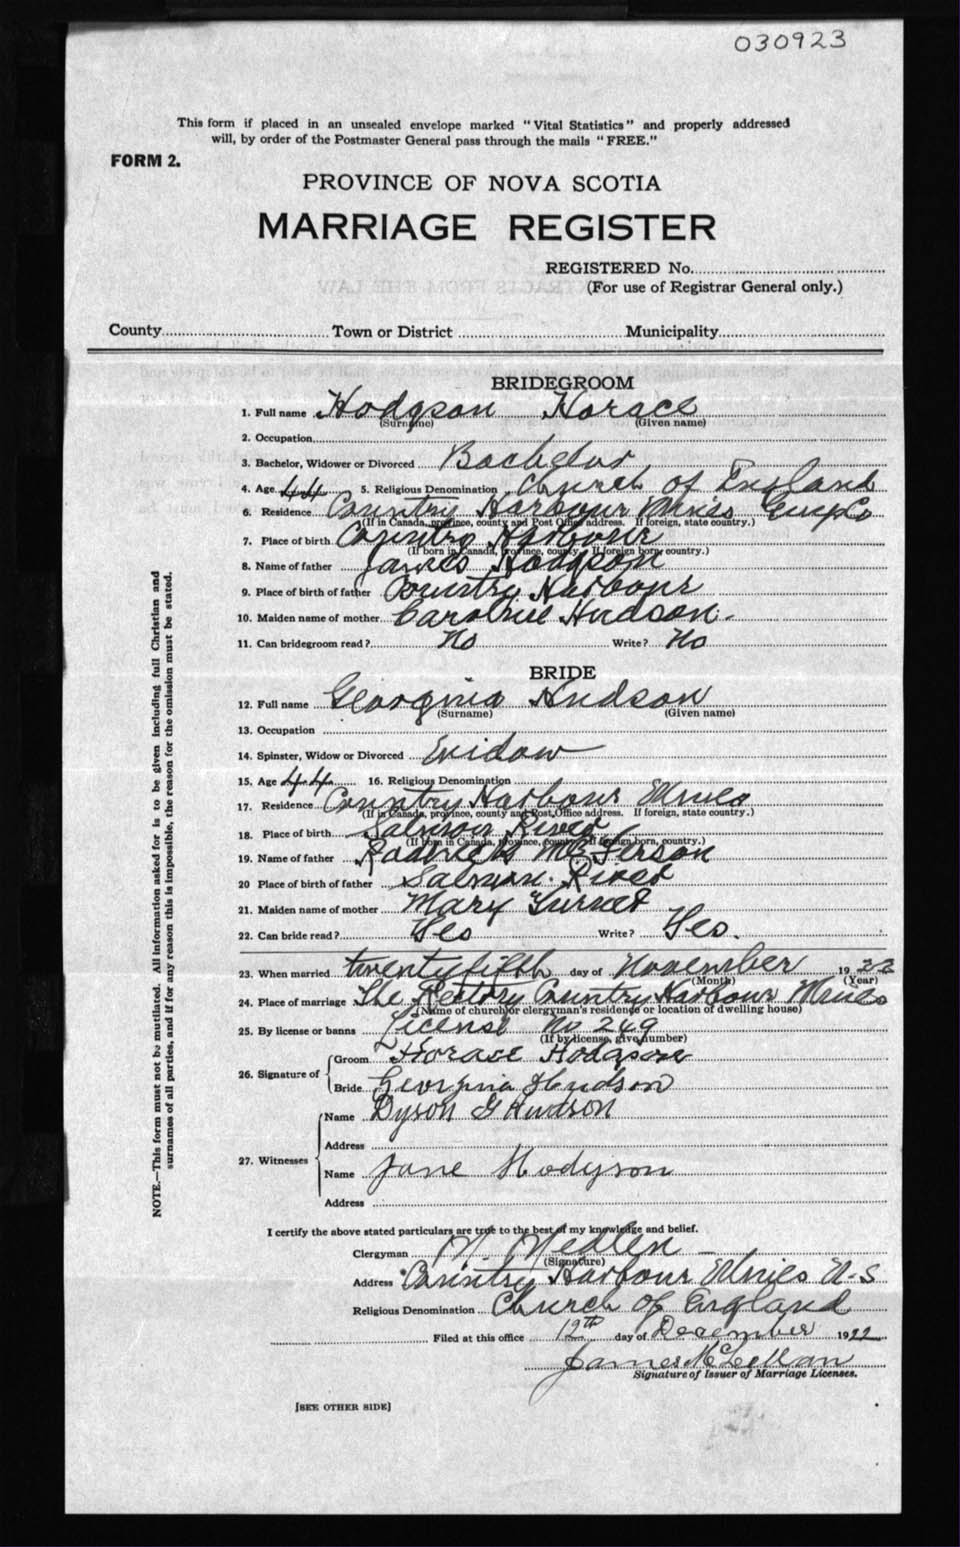 030923
This form if placed in an unsealed envelope marked "Vital Statistics" and properly addressed
will, by order of the Postmaster General pass through the mails "FREE."
FORM 2.
PROVINCE OF NOVA SCOTIA
MARRIAGE REGISTER
REGISTERED No.
(For use of Registrar General only.)
County Town or District Municipality
BRIDEGROOM
1. Full name Hodgson Horace
(Surname) (Given name)
2. Occupation
3. Bachelor, Widower or Divorced Bachelor
4. Age 44 5. Religious Denomination Church of England
6. Residence Country Harbour Mines Guys Co
(If in Canada, province, county and Post Office address. If foreign, state country.)
7. Place of birth Country Harbour
(If born in Canada, province, county. If foreign born, country.)
8. Name of father James Hodgson
9. Place of birth of father Country Harbour
10. Maiden name of mother Caroline Hudson.
11. Can bridegroom read? No Write? No
BRIDE
12. Full name Georgina Hudson
(Surname) (Given name)
13. Occupation
14. Spinster, Widow or Divorced Widow
15. Age 44 16. Religious Denomination
17. Residence Country Harbour Mines
(If in Canada, province, county and Post Office address. If foreign, state country.)
18. Place of birth Salmon River
(If born in Canada, province, county. If foreign born, country.)
19. Name of father Roderick
20 Place of birth of father Salmon River
21. Maiden name of mother Mary
22. Can bride read? Yes Write? Yes.
23. When married twenty fifth day of November 1922
(Month) (Year)
24. Place of marriage The Rectory Country Harbour Mines
(Name of church or clergyman's residence or location of dwelling house)
25. By license or banns License No 249
(If by license, give number)
26. Signature of Groom Horace Hodgson
Bride Georgina Hudson
27. Witnesses Name Dyson G Hudson
Address
Name Jane Hodgson
Address
I certify the above stated particulars are true to the best of my knowledge and belief.
Clergyman W. Medlen
(Signature)
Address Country Harbour Mines N-S
Religious Denomination Church of England
Filed at this office 12th day of December 1922
James McLellan
Signature of Issuer of Marriage Licenses.
[SEE OTHER SIDE]
NOTE.—This form must not be mutilated. All information asked for is to be given including full Christian and
surnames of all parties, and if for any reason this is impossible, the reason for the omission must be stated.